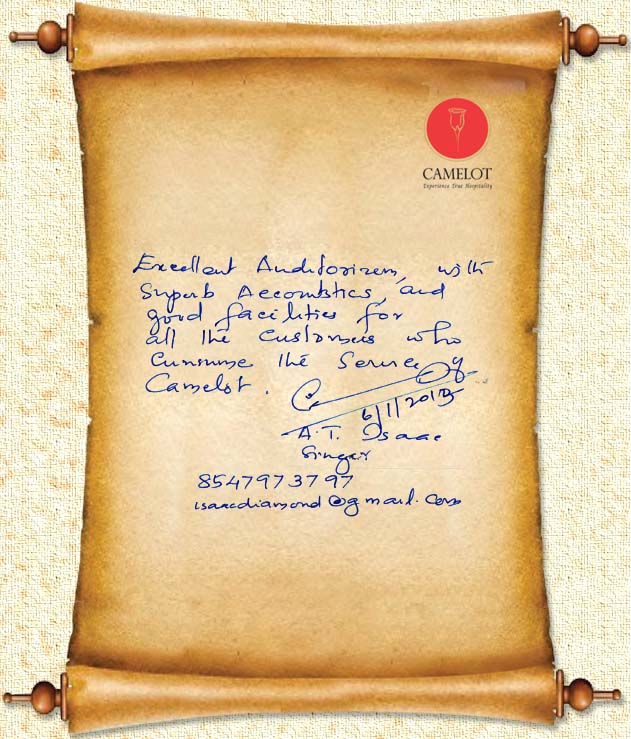 CAMELOT
Experience True Hospitality
Excellent Auditorium, with
Superb Accoustics, and
good facilities for
all the customers who
Cunsume the Service of
Camelot.
6/1/2013
A.T. Isaac
Singer
8547973797
isaacdiamond@gmail.com